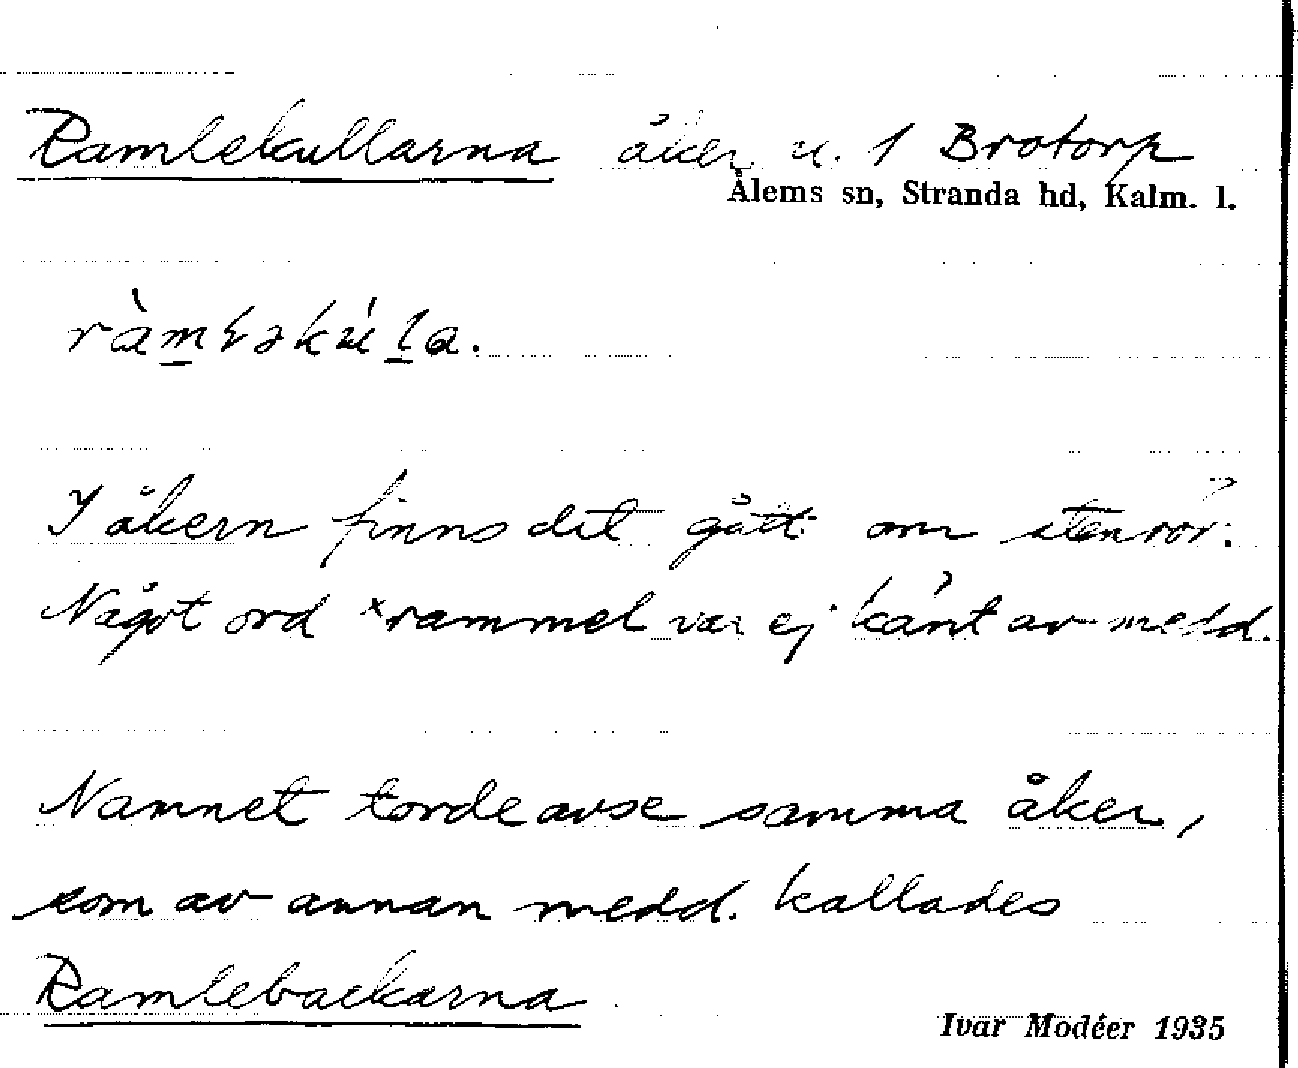 Ramlekullarna åker u. 1 Brotorp
Ålems sn, Stranda hd, Kalm. l.
I åkern finns det gått om stenrör.
Något ord ×rammel var ej känt av medd.
Namnet torde avse samma åker,
som av annan medd. kallades
Ramlebackarna
Ivar Modéer 1935